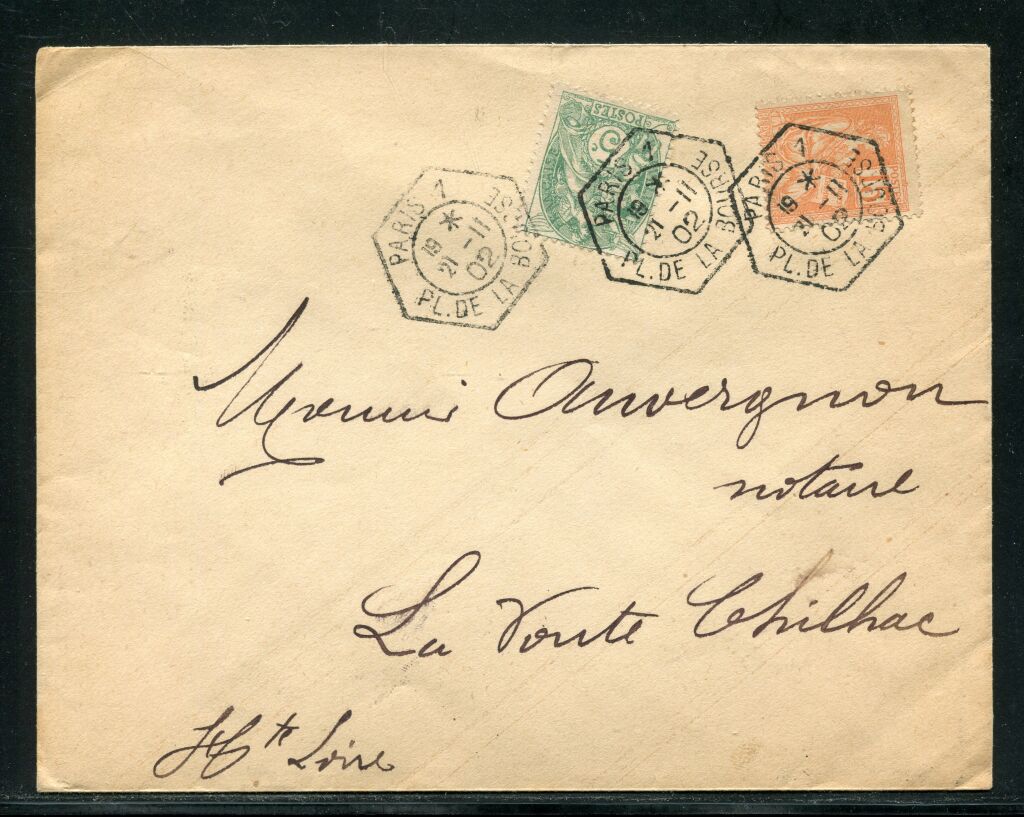 POSTES
5
PARIS 1
PL. DE LA BOURSE
19 *
21 -11
02
PARIS 1
PL. DE LA BOURSE
19 *
21 -11
02
PARIS 1
PL. DE LA BOURSE
19 *
21 -11
02
Monsieur Auvergnon
notaire
La Voute Chilhac
Hte Loire